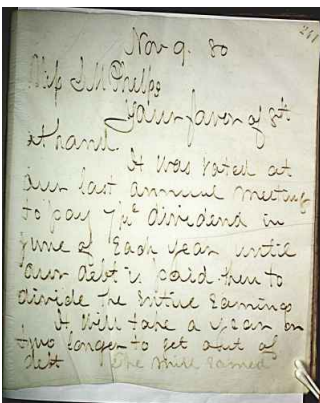 261
Nov 9. 80
Miss J M Phelps
Your favor of 8th
at hand.
It was voted at
our last annual meeting
to pay 7% dividend in
June of Each year until
our debt is paid then to
divide the Entire Earnings
It will take a year or
two longer to get out of
debt The Mill Earned